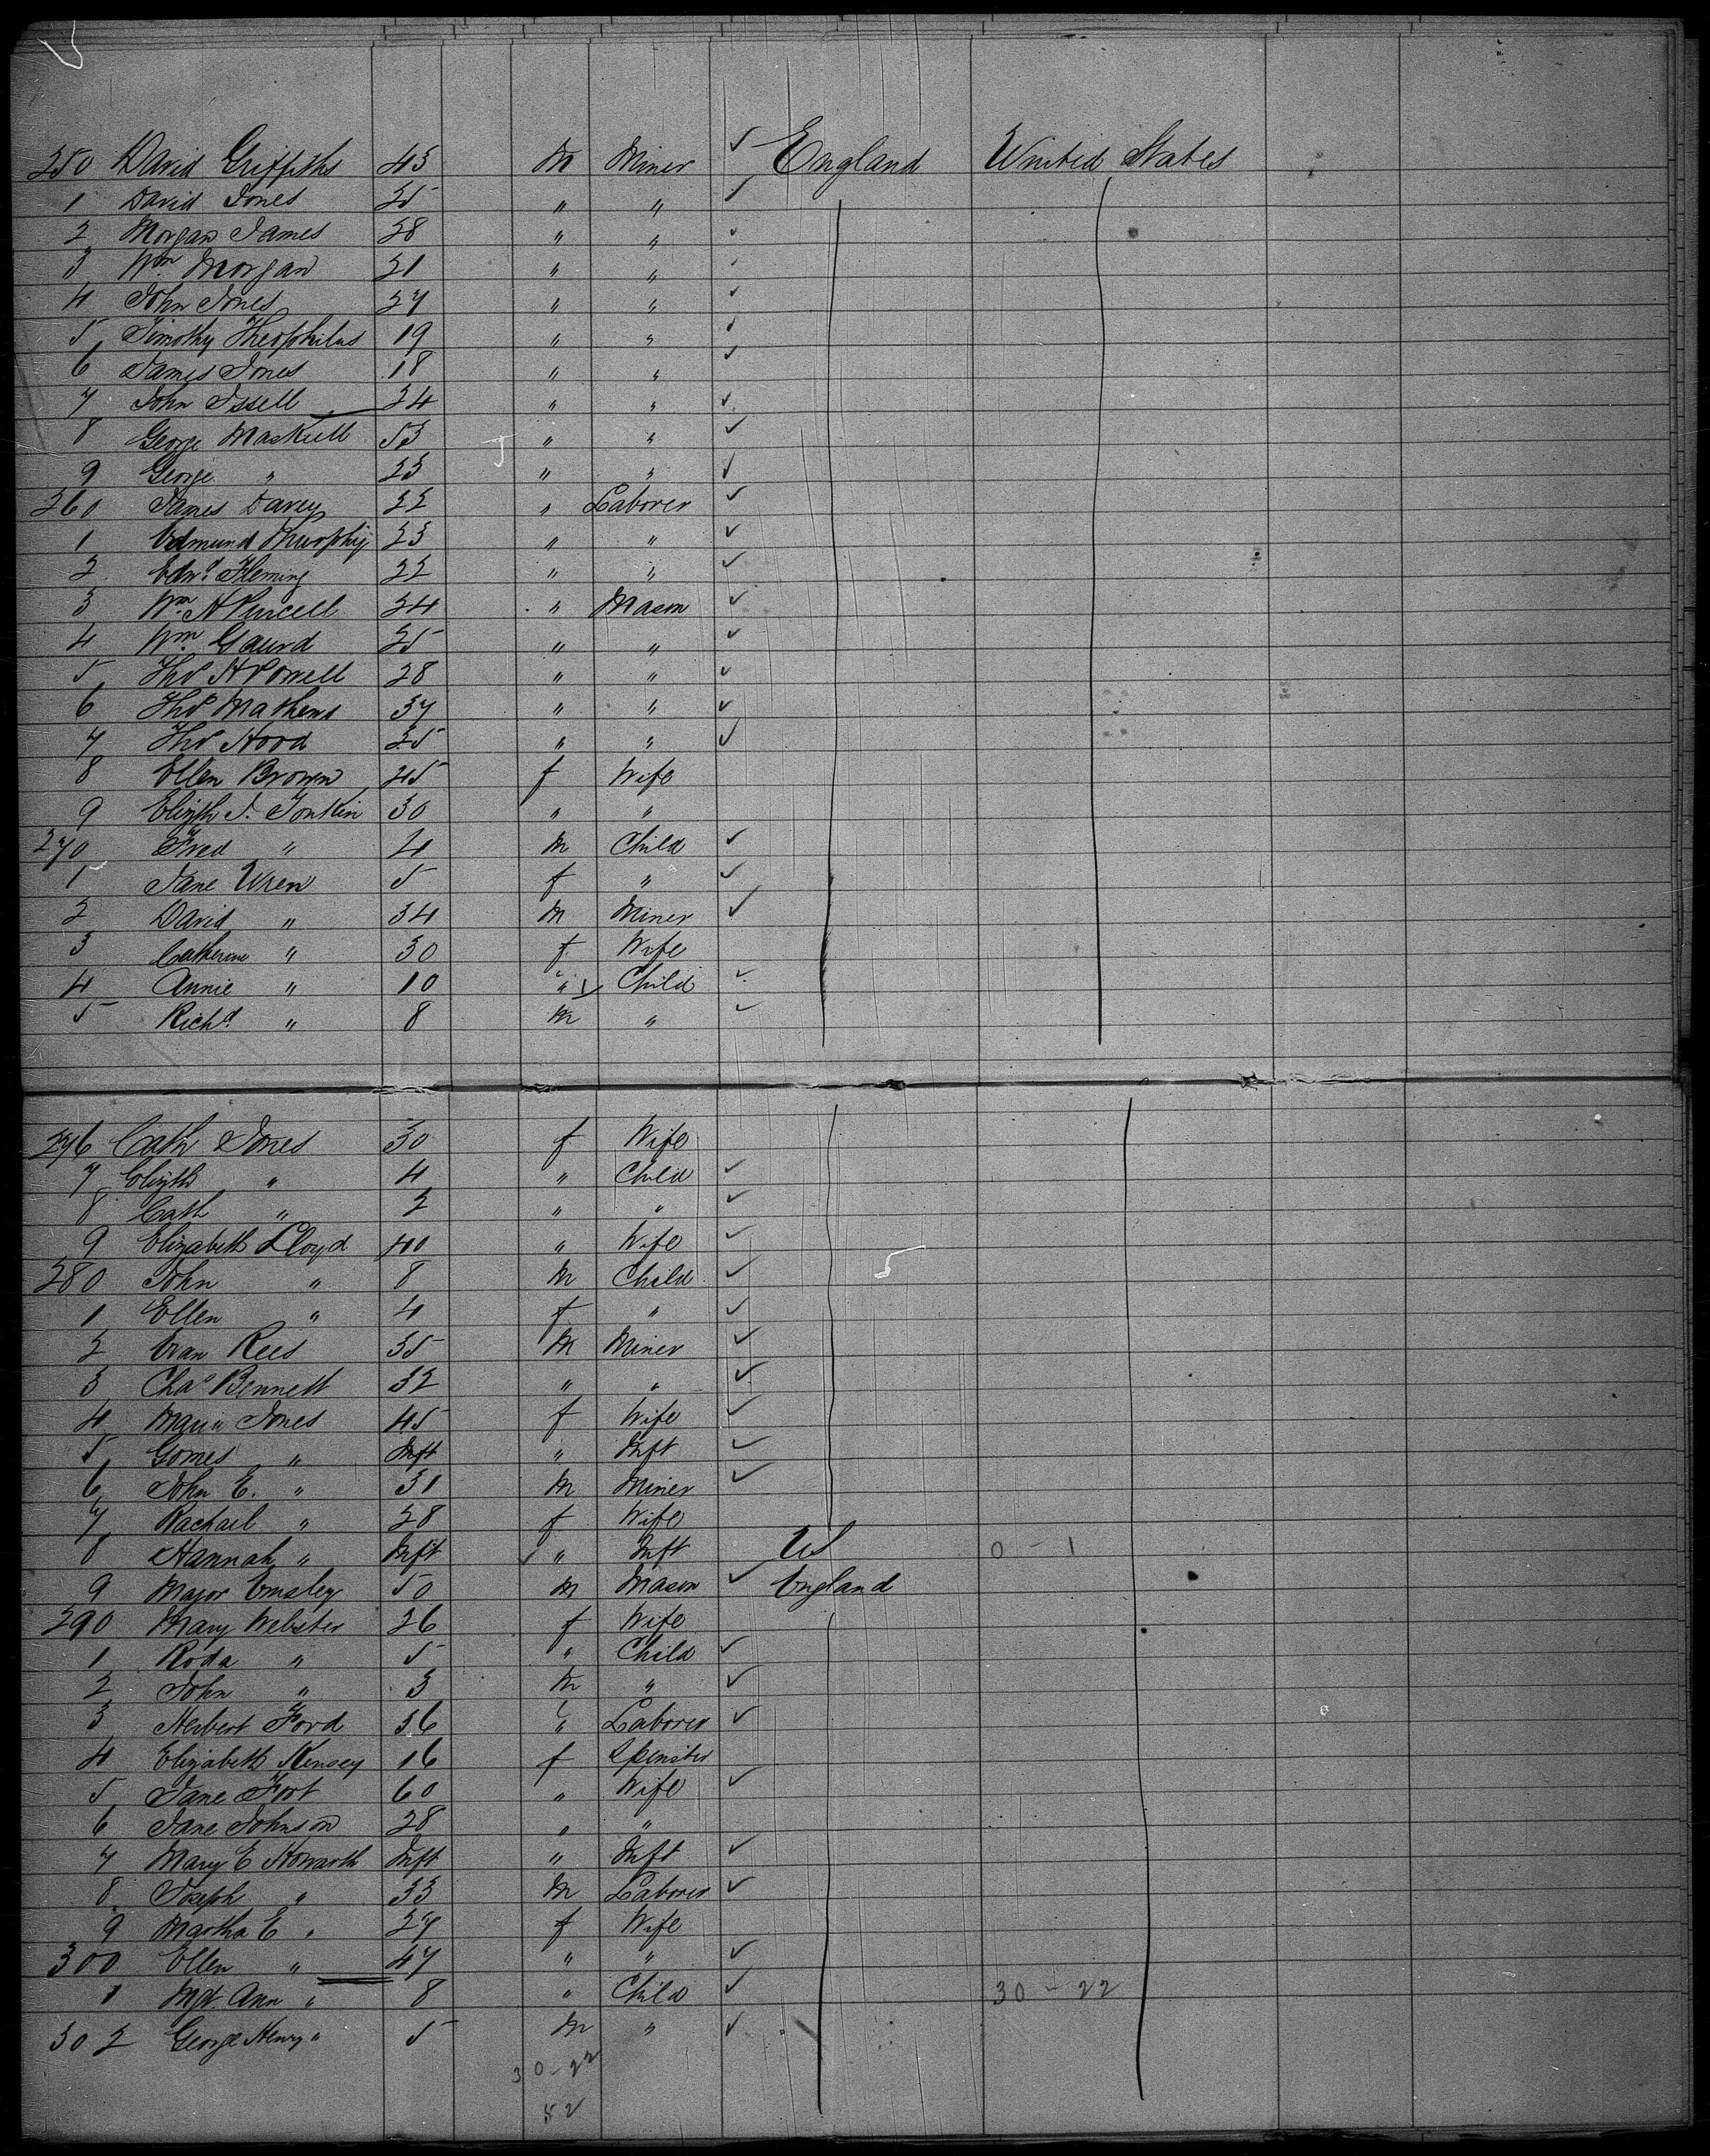 250 David Griffiths 43 M Miner ✓ England United States
1 David Jones 35 " " ✓
2 Morgan James 28 " " ✓
3 Wm Morgan 21 " " ✓
4 John Jones 27 " " ✓
5 Timothy Theophilus 19 " " ✓
6 James Jones 18 " " ✓
7 John Issell 24 " " ✓
8 George Maskell 53 " " ✓
9 George " 23 " " ✓
260 James Davey 22 " Laborer ✓
1 Edmund Murphy 23 " " ✓
2 Edwd Fleming 22 " " ✓
3 Wm H Purcell 24 " Mason ✓
4 Wm Gaurd 25 " " ✓
5 Thos H Powell 28 " " ✓
6 Thos Mathews 37 " " ✓
7 Thos Hood 25 " " ✓
8 Ellen Brown 45 f Wife
9 Elizth J. Tonkin 30 " "
270 Fred " 4 M Child ✓
1 Jane Wren 5 f " ✓
2 David " 34 M Miner ✓
3 Catherine " 30 f Wife
4 Annie " 10 " Child ✓
5 Richd " 8 M " ✓
276 Cath Jones 30 f Wife
7 Elizth " 4 " Child ✓
8 Cath " 2 " " ✓
9 Elizabeth Lloyd 40 " Wife ✓
280 John " 8 M Child ✓
1 Ellen " 4 f " ✓
2 Evan Rees 35 M Miner ✓
3 Chas Bennett 32 " " ✓
4 Maria Jones 45 f Wife ✓
5 Gomes " Inft " Inft ✓
6 John E. " 31 M Miner ✓
7 Rachael " 28 f Wife
8 Hannah " Inft ✓ " Inft US 0 - 1
9 Major Emsley 50 M Mason ✓ England
290 Mary Webster 26 f Wife
1 Roda " 5 " Child ✓
2 John " 3 M " ✓
3 Herbert Ford 36 " Laborer ✓
4 Elizabeth Kensey 16 f Spinster
5 Jane Fort 60 " Wife ✓
6 Jane Johnson 28 " "
7 Mary E Howarth Inft " Inft ✓
8 Joseph " 33 M Laborer ✓
9 Martha E " 27 f Wife
300 Ellen " 47 " " ✓
1 Mgt. Ann " 8 " Child ✓ 30 - 22
302 George Henry " 5 M " ✓
30 - 22
52